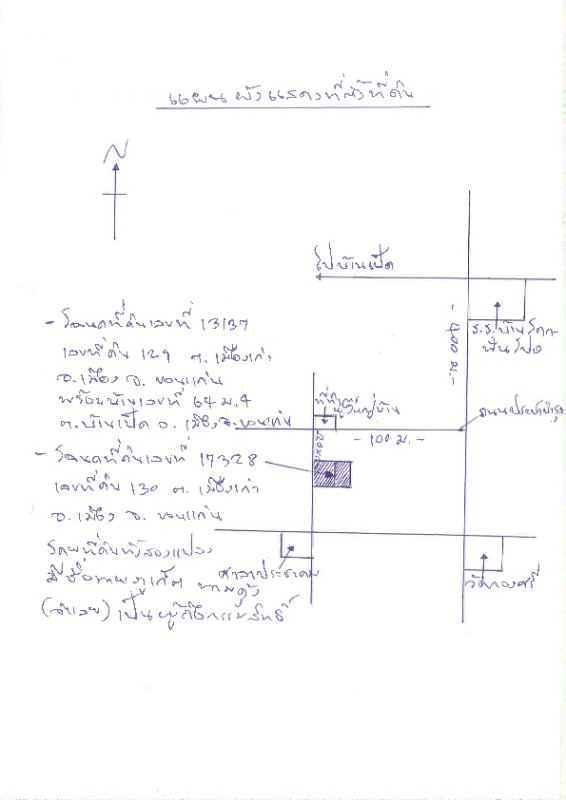 แผนผังแสดงที่ตั้งที่ดิน
N
ไปบ้านเป็ด
ร.ร.บ้านโคก
ฟันโปง
- 400 ม.-
- โฉนดที่ดินเลขที่ 13137
เลขที่ดิน 129 ต. เมืองเก่า
อ. เมือง จ. ขอนแก่น
พร้อมบ้านเลขที่ 64 ม.4
ต. บ้านเป็ด อ. เมือง จ. ขอนแก่น
ที่ทำการ
ผู้ใหญ่บ้าน
20 ม.
- 100 ม. -
- โฉนดที่ดินเลขที่ 17328
เลขที่ดิน 130 ต. เมืองเก่า
อ. เมือง จ. ขอนแก่น
โดยที่ดินทั้งสองแปลง
มีชื่อนายภูเก็ต
(จำเลย) เป็นผู้ถือกรรมสิทธิ์
ศาลาประชาคม
วัดกองศรี